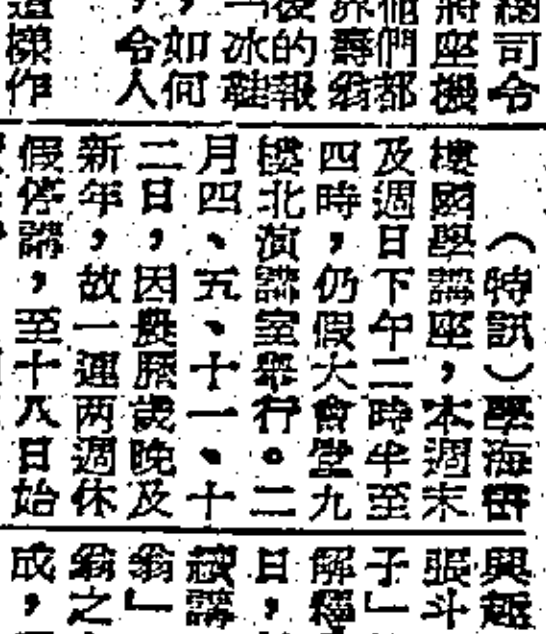 總司令
將座機
他們都
界壽翁
後的報
冰鞋
，如何
，令人
這樣作
（特訊）學海書
樓國學講座，本週末
及週日下午二時半至
四時，仍假大會堂九
樓北演講室舉行。二
月四、五、十一、十
二日，因農曆歲晚及
新年，故一連两週休
假停講，至十八日始
興趣
張斗
子」
解釋
日，
續講
翁」
翁之
成，